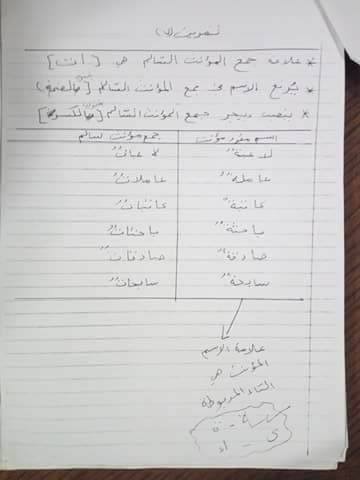 تمرين (١)
* علامة جمع المؤنث السالم هي [ات]
* يُرفع الاسم في جمع المؤنث السالم بالضمة
* ينصب ويجر جمع المؤنث السالم بالكسرة
اسم مفرد مؤنث جمع مؤنث سالم
لاعبةٌ لاعباتٌ
عاملةٌ عاملاتٌ
غائبةٌ غائباتٌ
باحثةٌ باحثاتٌ
صادقةٌ صادقاتٌ
سابحةٌ سابحاتٌ
علامة الاسم
المؤنث هي
التاء المربوطة